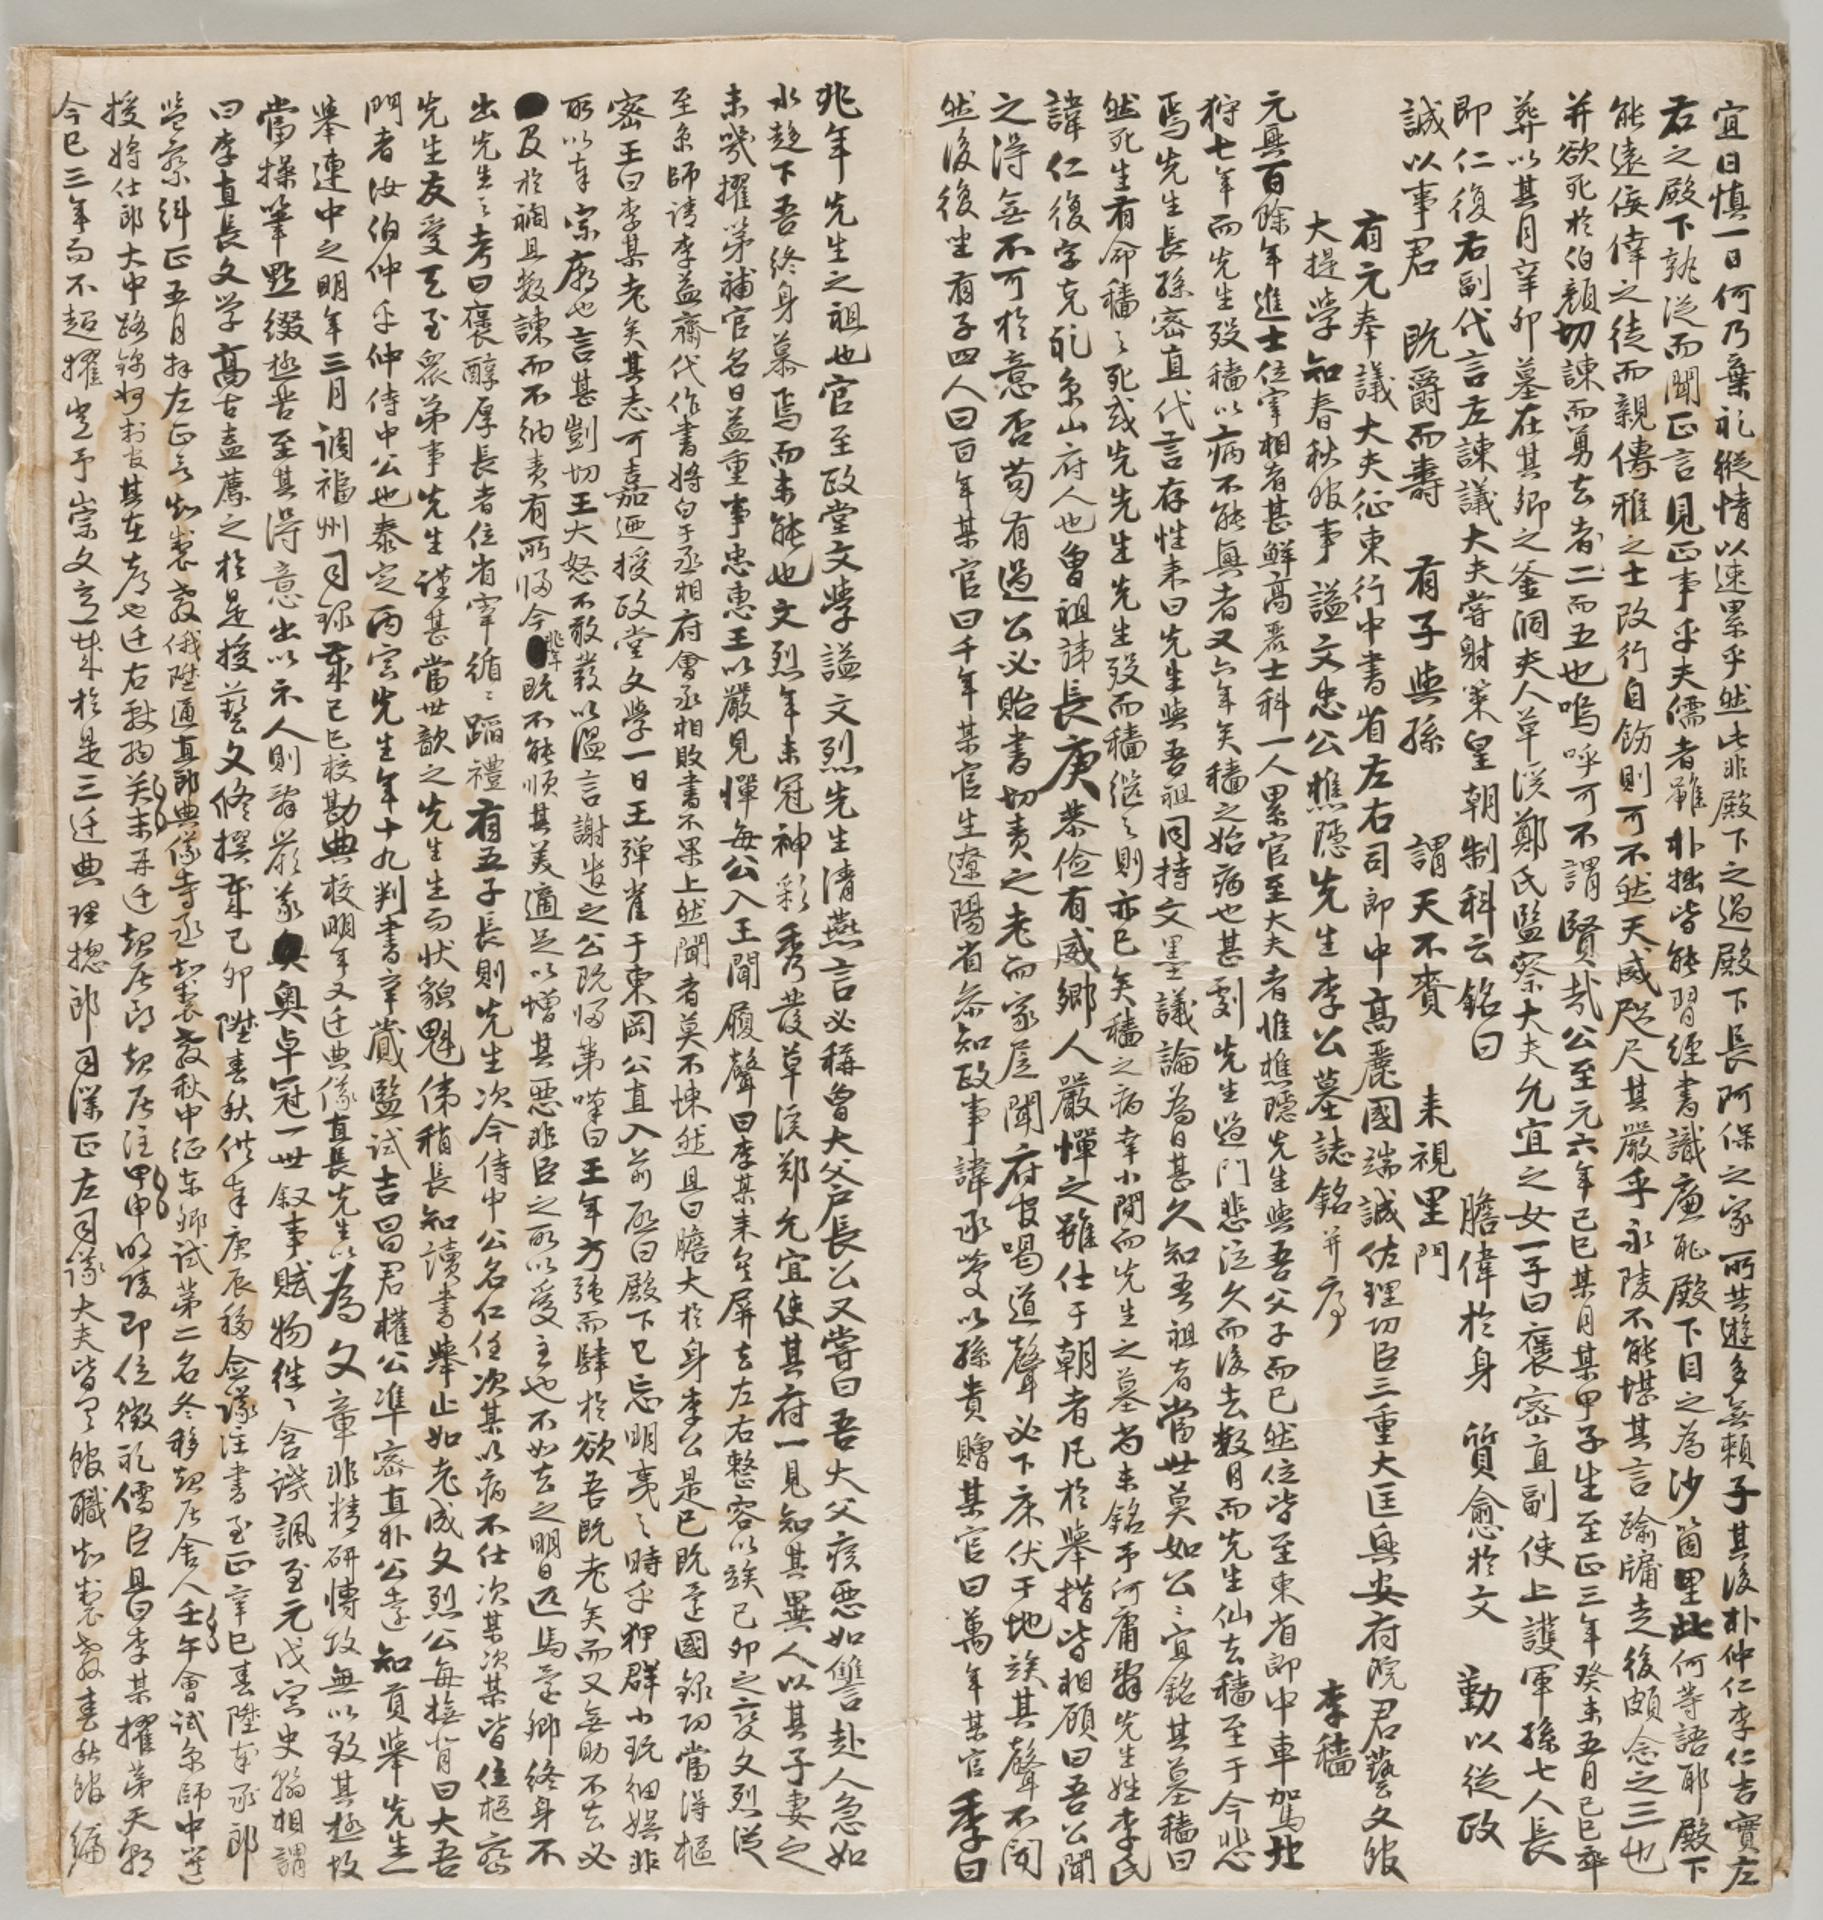 宜日慎一日何乃棄礼縱情以速累乎然此非殿下之過殿下長阿保之家所共遊多無賴子其後朴仲仁李仁吉實左
右之殿下孰從而聞正言見正事乎夫儒者雖朴拙皆能習經書識廉恥殿下目之為沙箇里此何等語耶殿下
能遠佞倖之徒而親傳雅之士改行自飭則可不然天威咫尺其嚴乎永陵不能堪其言踰牗走後頗念之三也
幷欲死於伯顔切諫而勇去者二而五也嗚呼可不謂賢哉公至元六年己巳某月某甲子生至正三年癸未五月己巳卒
葬以其月辛卯墓在其鄉之釜洞夫人草溪鄭氏監察大夫允宜之女一子曰褒密直副使上護軍孫七人長
即仁復右副代言左諫議大夫嘗射策皇朝制科云銘曰 膽偉於身 質愈於文 勤以從政
誠以事君 既爵而壽 有子與孫 謂天不賚 來視里門
有元奉議大夫征東行中書省左右司郎中高麗國端誠佐理功臣三重大匡興安府院君藝文館
大提學知春秋館事謚文忠公樵隱先生李公墓誌銘幷序 李穡
元興百餘年進士位宰相者甚鮮高麗士科一人累官至大夫者惟樵隱先生與吾父子而已然位皆至東省郎中車駕北
狩七年而先生歿穡以病不能與者又六年矣穡之始病也甚劇先生過門悲泣久而後去數月而先生仙去穡至于今悲
焉先生長孫密直代言存性來曰先生與吾祖同持文墨議論為日甚久知吾祖者當世莫如公公宜銘其墓穡曰
然死生有命穡穡死或先先生先生歿而穡繼之則亦已矣穡之病幸小間而先生之墓尚未銘予何庸辭先生姓李氏
諱仁復字克礼京山府人也曾祖諱長庚恭儉有威鄉人嚴憚之雖仕于朝者凡於舉措皆相顧曰吾公聞
之得無不可於意否苟有過公必貽書切責之老而家居聞府官喝道聲必下床伏于地竢其聲不聞
然後復坐有子四人曰百年某官曰千年某官生遼陽省叅知政事諱承慶以孫貴贈某官曰萬年某官季曰
兆年先生之祖也官至政堂文學謚文烈先生清燕言必稱曾大父戶長公又嘗曰吾大父疾惡如讎言赴人急如
水趍下吾終身慕焉而未能也文烈年未冠神彩秀發草溪鄭允宜使其府一見知其異人以其子妻之
未幾擢第補官名日益重事忠惠王以嚴見憚每公入王聞履聲曰李某来矣屏去左右整容以竢己卯之變文烈從
至京師請李益齋代作書將白于丞相府會丞相敗書不果上然聞者莫不悚然且曰膽大於身李公是已既還國錄功當得樞
密王曰李某老矣其志可嘉迺授政堂文學一日王彈雀于東岡公直入前啓曰殿下已忘明夷夷時乎狎群小玩細娛非
所以奉宗廟也言甚剴切王大怒不敢發以溫言謝遣之公既歸第嘆曰王年方強而肆於欲吾既老矣而又無助不去必
及於禍且數諫而不納責有所歸今兆年既不能順其美適足以增其惡非臣之所以愛主也不如去之明日匹馬還鄉終身不
出先生先生考曰褒醇厚長者位省宰循循蹈禮有五子長則先生次今侍中公名仁任次某以病不仕次某次某皆任樞密
先生友愛天至衆弟事先生謹甚當世歆之先生生而状貌魁偉稍長知讀書舉止如老成文烈公每撫背曰大吾
門者汝伯仲乎仲侍中公也泰定丙寅先生年十九判書辛蕆監試吉昌君權公準密直朴公遠知貢舉先生
舉連中之明年三月調福州司録歲己巳校勘典校明年又迁典儀直長先生以為文章非精研博攷無以致其極故
當操筆點綴極苦至其得意出以示人則辭嚴義奥卓冠一世叙事賦物徃徃含譏諷至元戊寅史翰相謂
曰李直長文学高古盍薦之於是授藝文修撰歲己卯陞春秋供奉庚辰移僉議注書至正辛巳春陞奉承郎
监察糾正五月拜左正言知製教俄陞通直郎典儀寺丞知製教秋中征东鄉試第二名冬移起居舍人壬午會試京師中選
授將仕郎大中路錦州判官其在庵也迁右献納癸未再迁起居郎起居注甲申明陵即位徵礼儒臣具曰李某擢第天朝
今已三年而不超擢豈予崇文之意於是三迁典理摠郎司議正左司議大夫皆帶館職知製教春秋館編